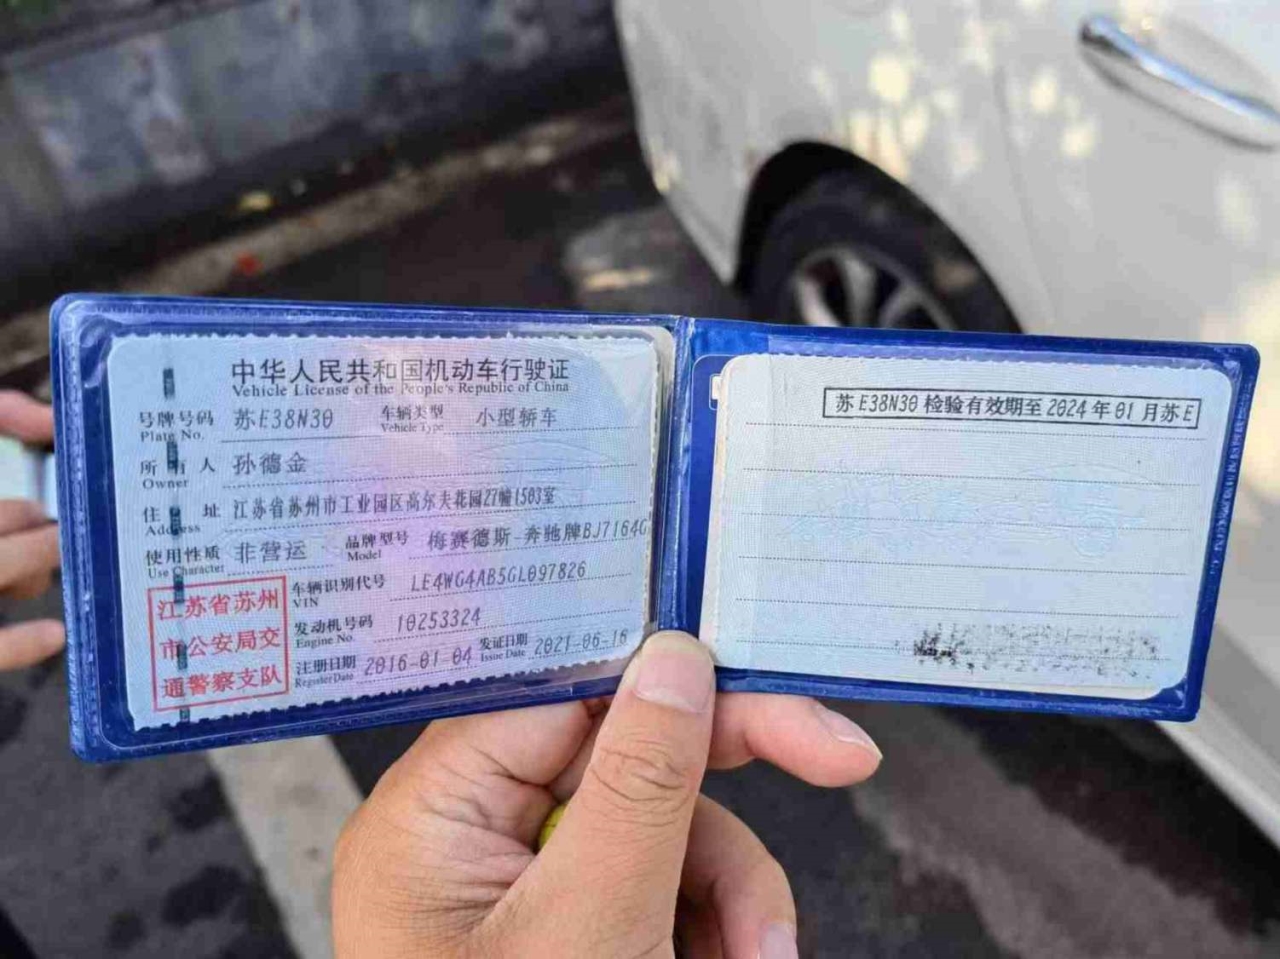 中华人民共和国机动车行驶证
Vehicle License of the People's Republic of China
号牌号码 苏E38N30 车辆类型 小型轿车
Plate No. Vehicle Type
所有人 孙德金
Owner
住址 江苏省苏州市工业园区高尔夫花园27幢1503室
Address
使用性质 非营运 品牌型号 梅赛德斯-奔驰牌BJ7164G
Use Character Model
江苏省苏州 车辆识别代号 LE4WG4AB5GL097826
VIN
市公安局交 发动机号码 10253324
Engine No.
通警察支队 注册日期 2016-01-04 发证日期 2021-06-16
Register Date Issue Date
苏E38N30检验有效期至2024年01月苏E